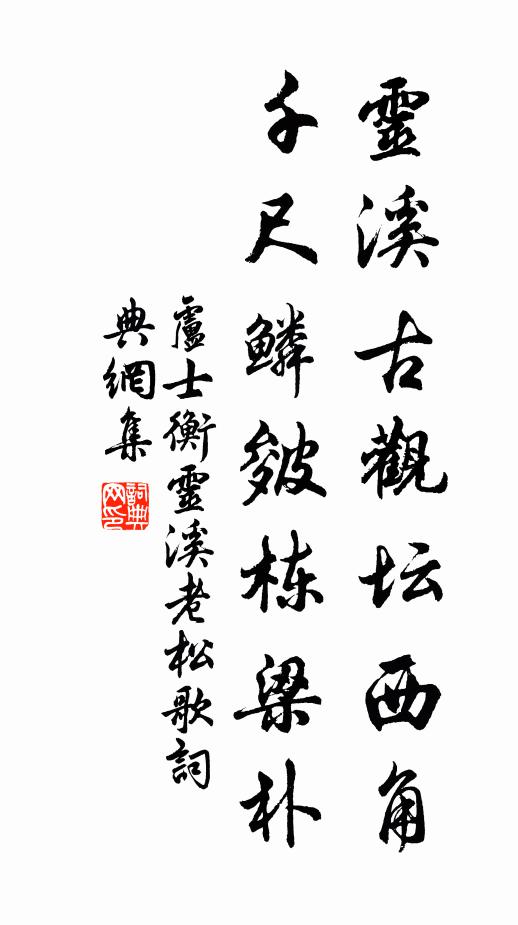 靈溪古觀坛西角
千尺鱗皴栋梁朴
盧士衡靈溪老松歌詞
典網集
詞典网印